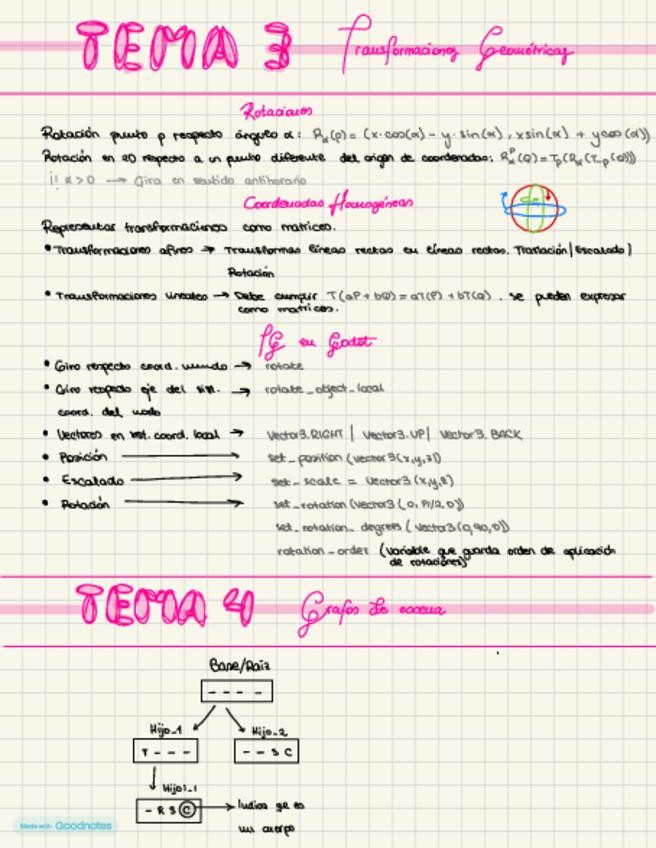 TEMA 3 Transformaciones Geométricas
Rotaciones
Rotación punto p respecto ángulo α: Rα(p) = (x·cos(α) - y·sin(α), x sin(α) + y cos(α))
Rotación en 2D respecto a un punto diferente del origen de coordenadas: R^P_α(Q)=Tp(Rα(T-p(Q)))
¡! α>0 → Gira en sentido antihorario
Coordenadas Homogéneas
Representar transformaciones como matrices.
• Transformaciones afines → Transformas líneas rectas en líneas rectas. Translación | Escalado |
Rotación
• Transformaciones lineales → Debe cumplir T(aP + bQ) = aT(P) + bT(Q). se pueden expresar
como matrices.
en Godot
• Giro respecto coord. mundo → rotate
• Giro respecto eje del sist. → rotate_object_local
coord. del nodo
• Vectores en coord. local → Vector3.RIGHT | Vector3.UP | Vector3.BACK
• Posición → set_position (Vector3(x,y,z))
• Escalado → set_scale = Vector3 (x,y,z)
• Rotación → set_rotation (Vector3 (0, PI/2, 0))
set_rotation_degrees (Vector3(0,90,0))
rotation_order (variable que guarda orden de aplicación
de rotaciones)
TEMA 4 Grafos de escena
Base/Raíz
- - - -
Hijo_1 Hijo_2
T - - - - - S C
Hijo1_1
- R S C → Indica qe es
un cuerpo
Made with Goodnotes